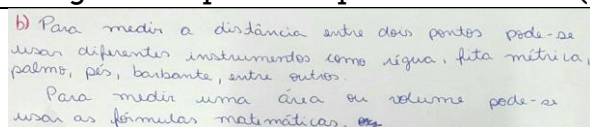 b) Para medir a distância entre dois pontos pode-se
usar diferentes instrumentos como régua, fita métrica,
palmo, pés, barbante, entre outros.
Para medir uma área ou volume pode-se
usar as fórmulas matemáticas.